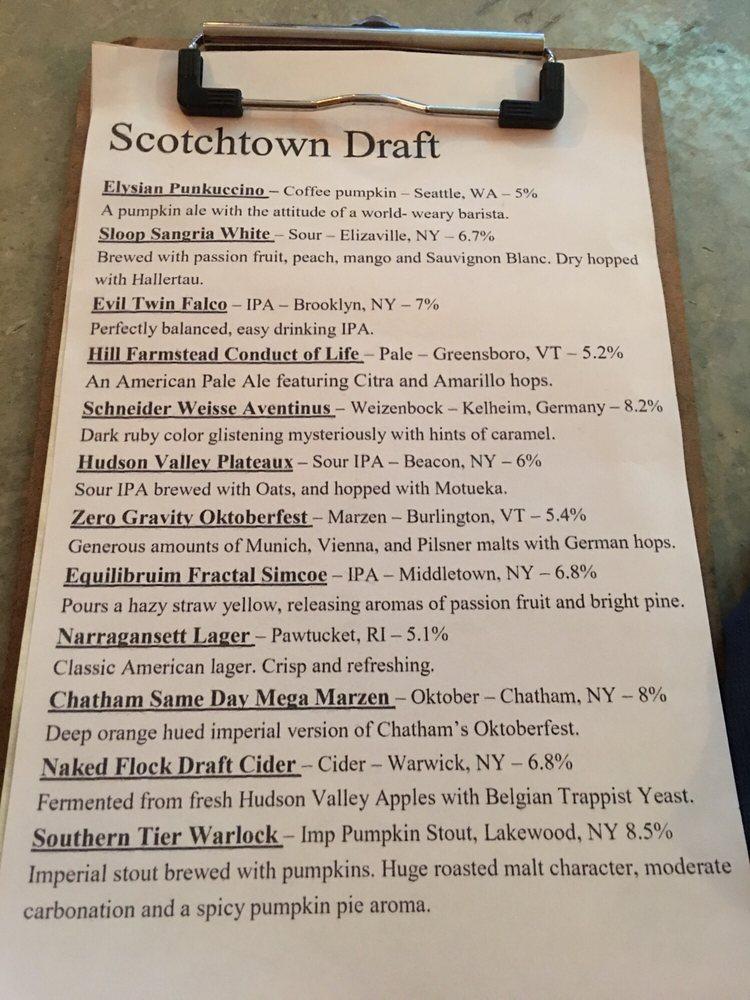 Scotchtown Draft
Elysian Punkuccino – Coffee pumpkin – Seattle, WA – 5%
A pumpkin ale with the attitude of a world- weary barista.
Sloop Sangria White – Sour – Elizaville, NY – 6.7%
Brewed with passion fruit, peach, mango and Sauvignon Blanc. Dry hopped
with Hallertau.
Evil Twin Falco – IPA – Brooklyn, NY – 7%
Perfectly balanced, easy drinking IPA.
Hill Farmstead Conduct of Life – Pale – Greensboro, VT – 5.2%
An American Pale Ale featuring Citra and Amarillo hops.
Schneider Weisse Aventinus – Weizenbock – Kelheim, Germany – 8.2%
Dark ruby color glistening mysteriously with hints of caramel.
Hudson Valley Plateaux – Sour IPA – Beacon, NY – 6%
Sour IPA brewed with Oats, and hopped with Motueka.
Zero Gravity Oktoberfest – Marzen – Burlington, VT – 5.4%
Generous amounts of Munich, Vienna, and Pilsner malts with German hops.
Equilibruim Fractal Simcoe – IPA – Middletown, NY – 6.8%
Pours a hazy straw yellow, releasing aromas of passion fruit and bright pine.
Narragansett Lager – Pawtucket, RI – 5.1%
Classic American lager. Crisp and refreshing.
Chatham Same Day Mega Marzen – Oktober – Chatham, NY – 8%
Deep orange hued imperial version of Chatham's Oktoberfest.
Naked Flock Draft Cider – Cider – Warwick, NY – 6.8%
Fermented from fresh Hudson Valley Apples with Belgian Trappist Yeast.
Southern Tier Warlock – Imp Pumpkin Stout, Lakewood, NY 8.5%
Imperial stout brewed with pumpkins. Huge roasted malt character, moderate
carbonation and a spicy pumpkin pie aroma.